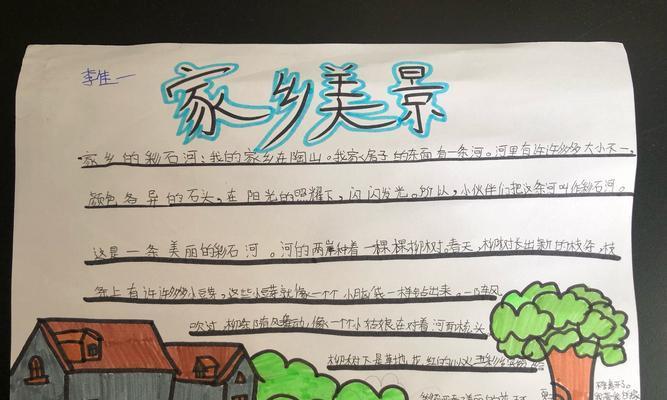 李佳一
家乡美景
家乡的彩石河:我的家乡在陶山。我家房子的东面有一条河。河里有许许多多大小不一、
颜色各异的石头,在阳光的照耀下,闪闪发光。所以,小伙伴们把这条河叫作彩石河。
这是一条美丽的彩石河。河的两岸种着一棵棵柳树。春天,柳树长出新的枝条,枝
条上有许许多多小豆芽,这些小豆芽就像一个个小脑袋一样钻出来。一阵风
吹过,柳条随风舞动,像一个个小姑娘在对着河面梳头
柳树下是草地,花红的